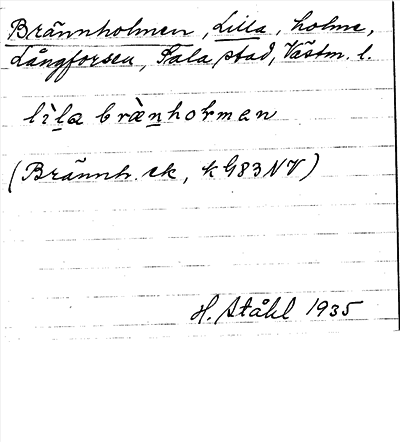 Brännholmen, Lilla, holme,
Långforsen, Sala stad, Västm. l.
lìla brànholmen
(Brännh. ek, k G83NV)
H. Ståhl 1935